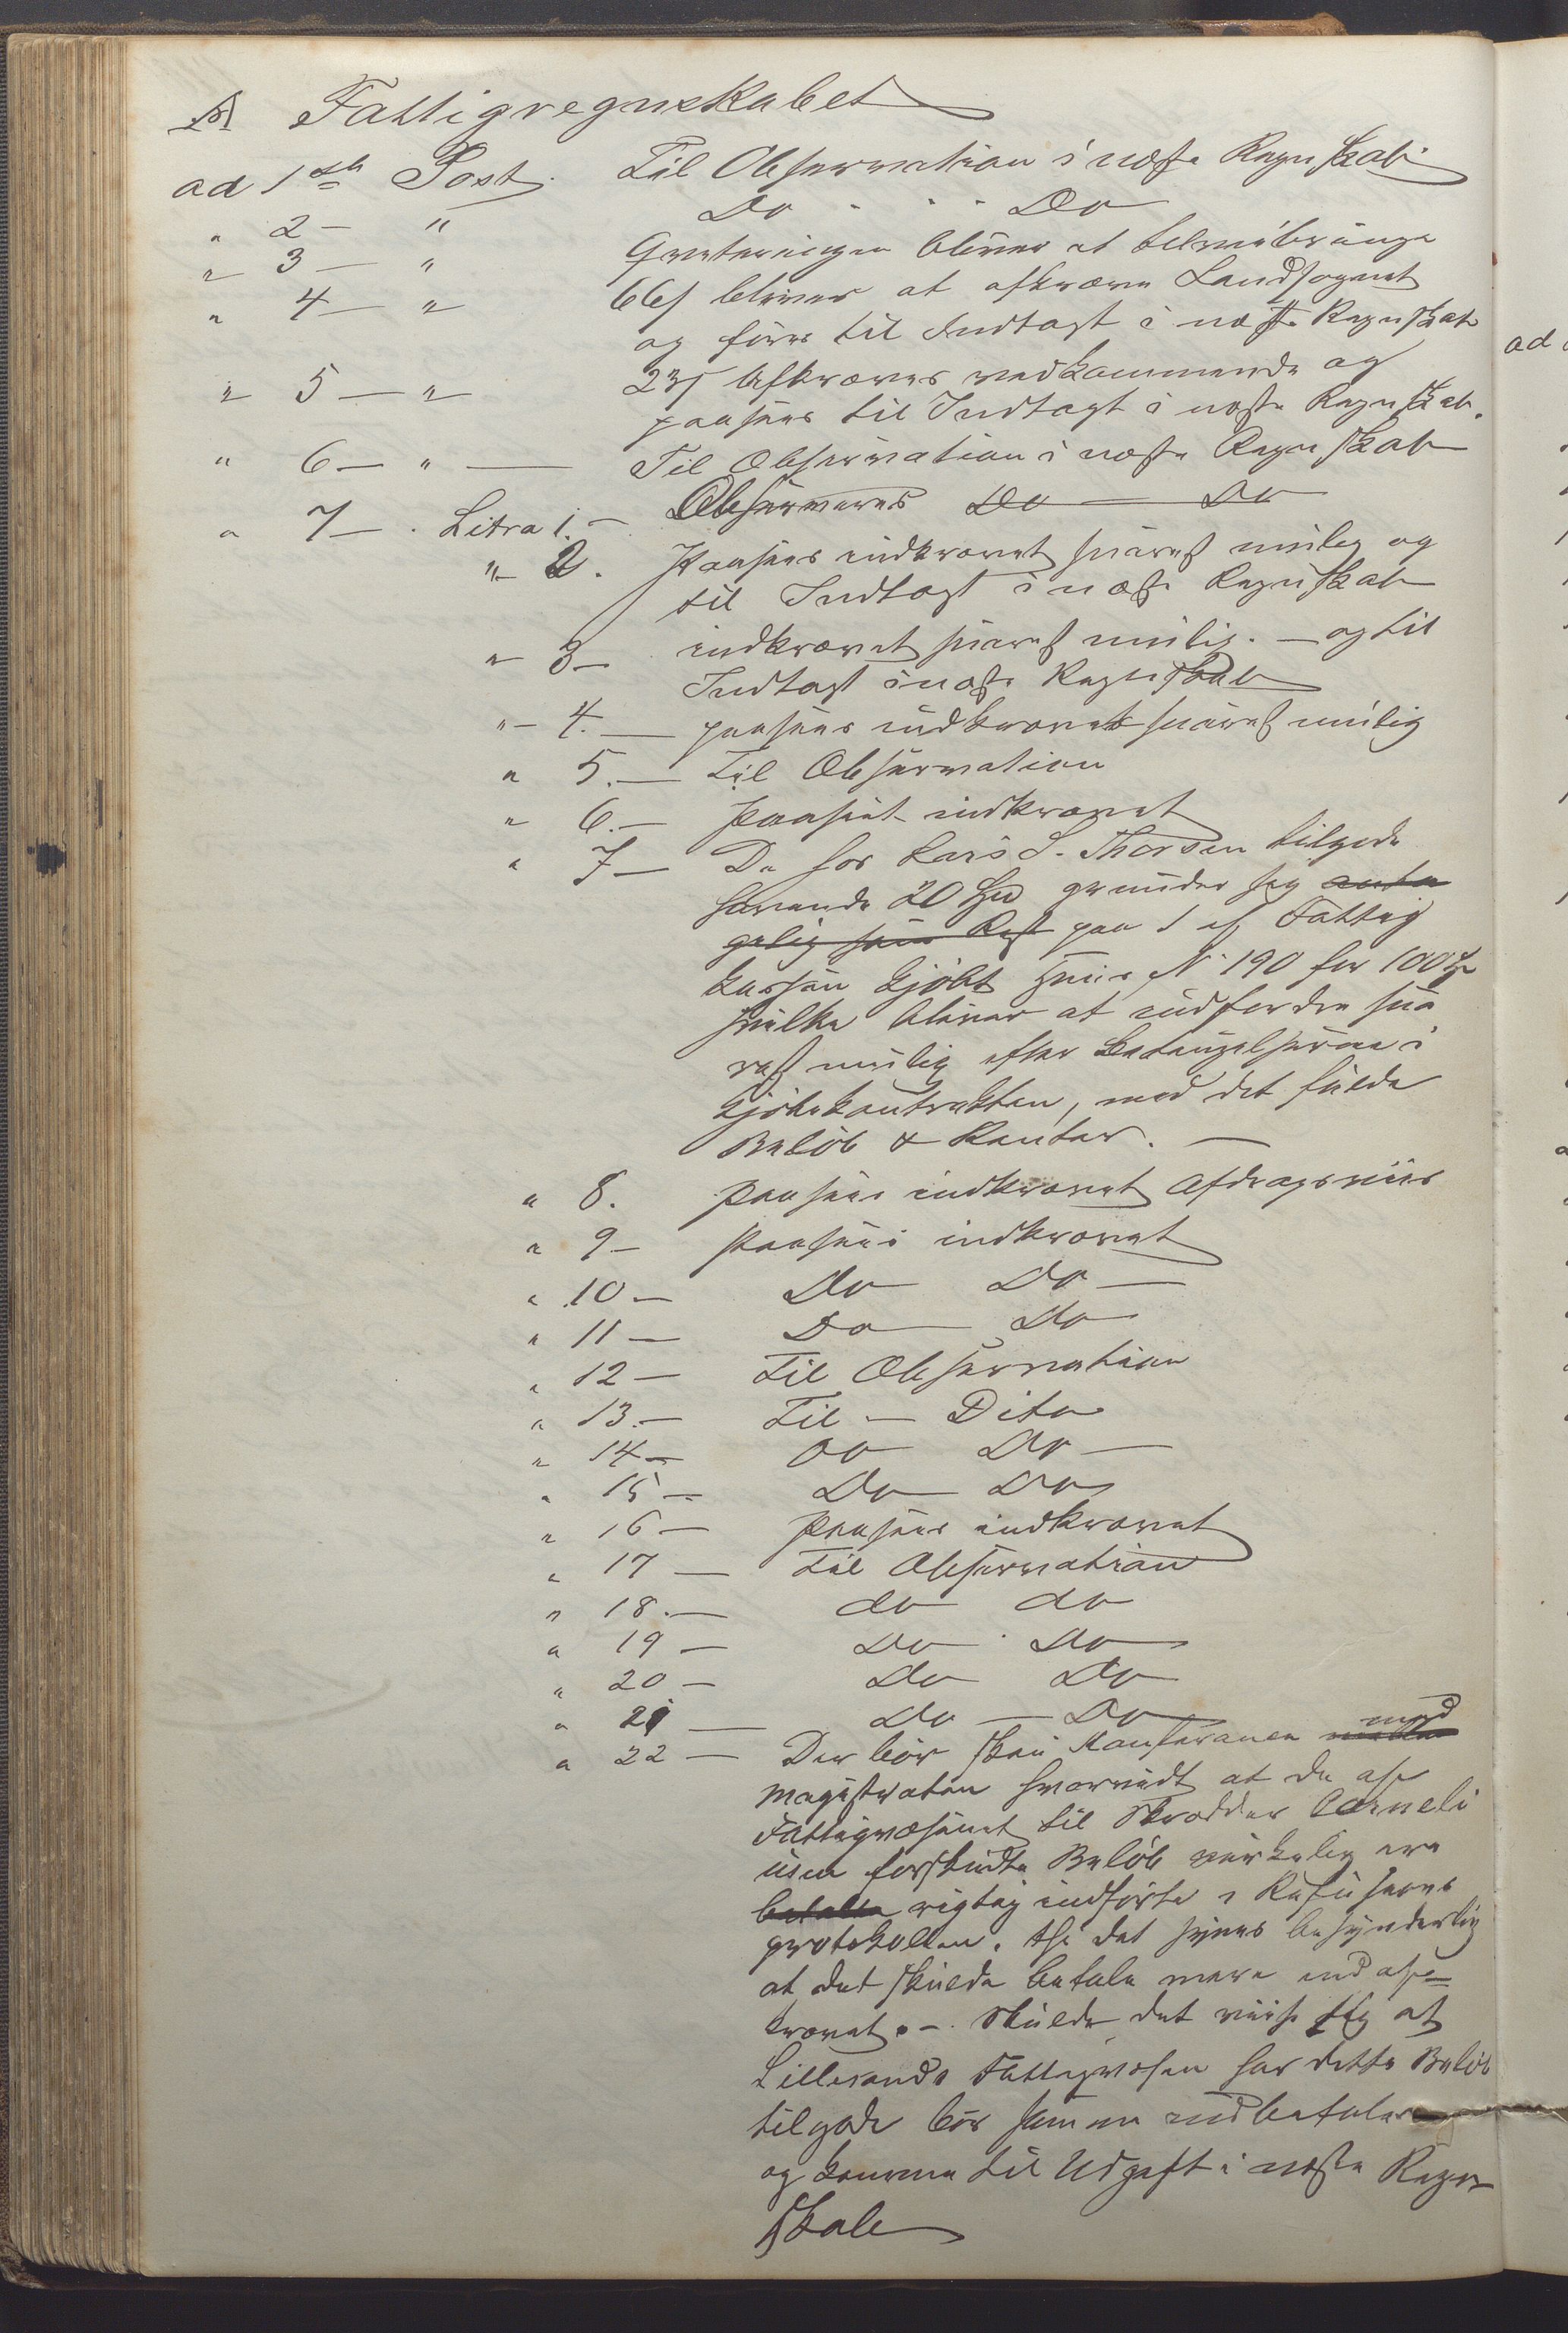 A Fattigregnskabet
ad 1ste Post. Til Observation i næste Regnskab.
" 2 — " Do " " " Do
" 3 — " Qvitteringen bliver at tilveiebringe
" 4 — " 66 bliver at afkræve Landsognet
og føres til Indtægt i næste Regnskab
" 5 — " 23 Afkræves vedkommende og
paasees til Indtægt i næste Regnskab.
" 6 — " — Til Observation i næste Regnskab
" 7 — . Litra 1. — Observeres Do — Do
" 2. Paasees indkrævet snarest mulig og
til Indtægt i næste Regnskab
" 3 — indkrævet snarest mulig. — og til
Indtægt i næste Regnskab
" 4. — paasees indkrævet snarest mulig
" 5. — Til Observation
" 6. — Paaseet indkrævet
" 7 — De for Lars S. Thorsen tilgode
havende 20 Spd grunder sig
paa 1 af Fattig
kassen kjöbt Huus No 190 for 100
hvilke bliver at indfordre sna
rest mulig efter Betingelserne i
Kjöbekontrakten, med det fulde
Belöb & Renter. —
" 8. Paasees indkrævet Afdragsviis
" 9 — Paasees indkrævet
" 10 — Do Do —
" 11 — Do Do
" 12 — Til Observation
" 13. — Til — Dito
" 14 — Do Do —
" 15 — Do Do
" 16 — Paasees indkrævet
" 17 — Til Observation
" 18. — do do
" 19 — Do Do
" 20 — Do Do
" 21 — Do — Do
" 22 — Der bör skee Konferance med
Magistraten hvorvidt at de af
Fattigvæsenet til Skrædder Corneli
usen forskudte Belöb virkelig ere
betalte rigtig indförte i Refusions
protokollen. thi det synes besynderlig
at det skulde betale mere end af=
krævet. —. Skulde det viise sig at
Lillesands Fattigvæsen har dette Belöb
tilgode bör samme indbetales
og komme til Udgift i næste Regn
skab